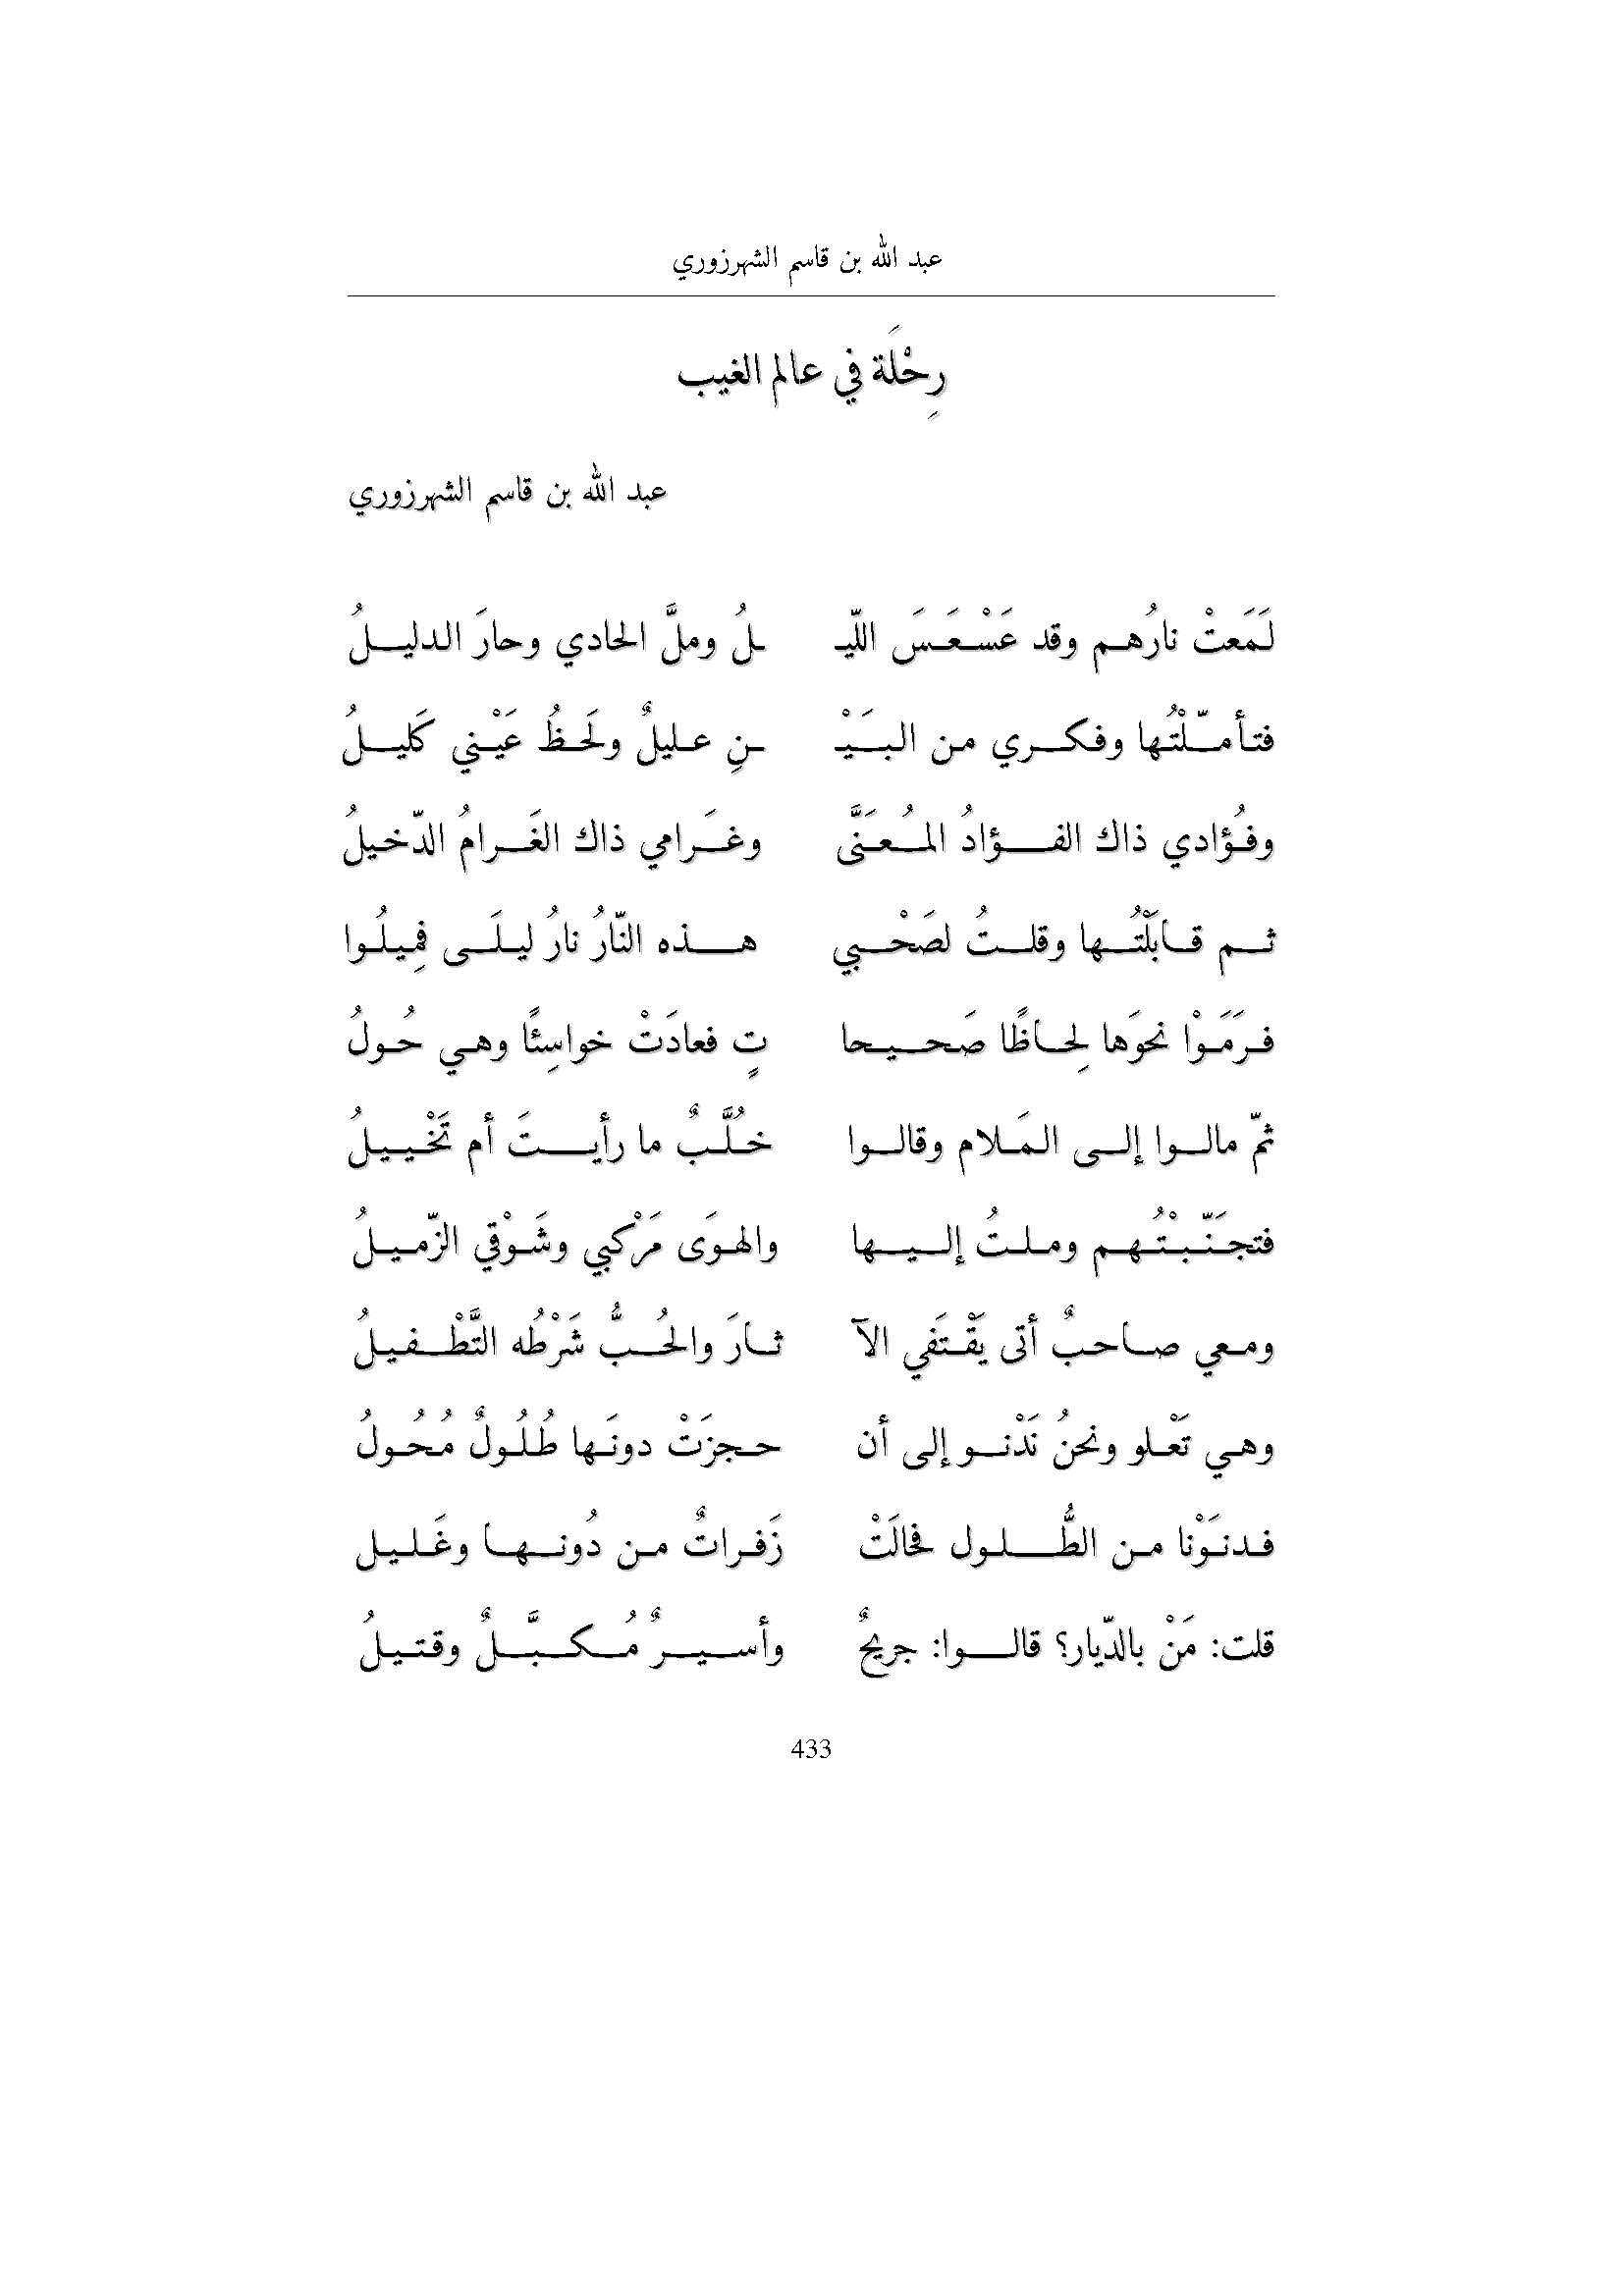 عبد الله بن قاسم الشهرزوري
رِحْلَة في عالم الغيب
عبد الله بن قاسم الشهرزوري
لَمَعتْ نارُهم وقد عَسْعَسَ اللّيـ ـلُ وملَّ الحادي وحارَ الدليلُ
فتأمّلْتُها وفكري من البَيْـ ـنِ عليلٌ ولَحظُ عَيْني كَليلُ
وفُؤادي ذاك الفؤادُ المُعَنَّى وغَرامي ذاك الغَرامُ الدّخيلُ
ثم قابَلْتُها وقلتُ لصَحْبي هذه النّارُ نارُ ليلَى فمِيلُوا
فرَمَوْا نحوَها لِحاظًا صَحيحا تٍ فعادَتْ خواسِئًا وهي حُولُ
ثمّ مالوا إلى المَلام وقالوا خُلَّبٌ ما رأيتَ أم تَخْييلُ
فتجَنّبْتُهم وملتُ إليها والهوَى مَرْكبي وشَوْقي الزّميلُ
ومعي صاحبٌ أتى يَقْتَفي الآ ثارَ والحُبُّ شَرْطُه التَّطْفيلُ
وهي تَعْلو ونحنُ نَدْنو إلى أن حجزَتْ دونَها طُلُولٌ مُحُولُ
فدنَوْنا من الطُّلول فحالَتْ زَفراتٌ من دُونها وغَليل
قلت: مَنْ بالدّيار؟ قالوا: جريحٌ وأسيرٌ مُكبَّلٌ وقتيلُ
433